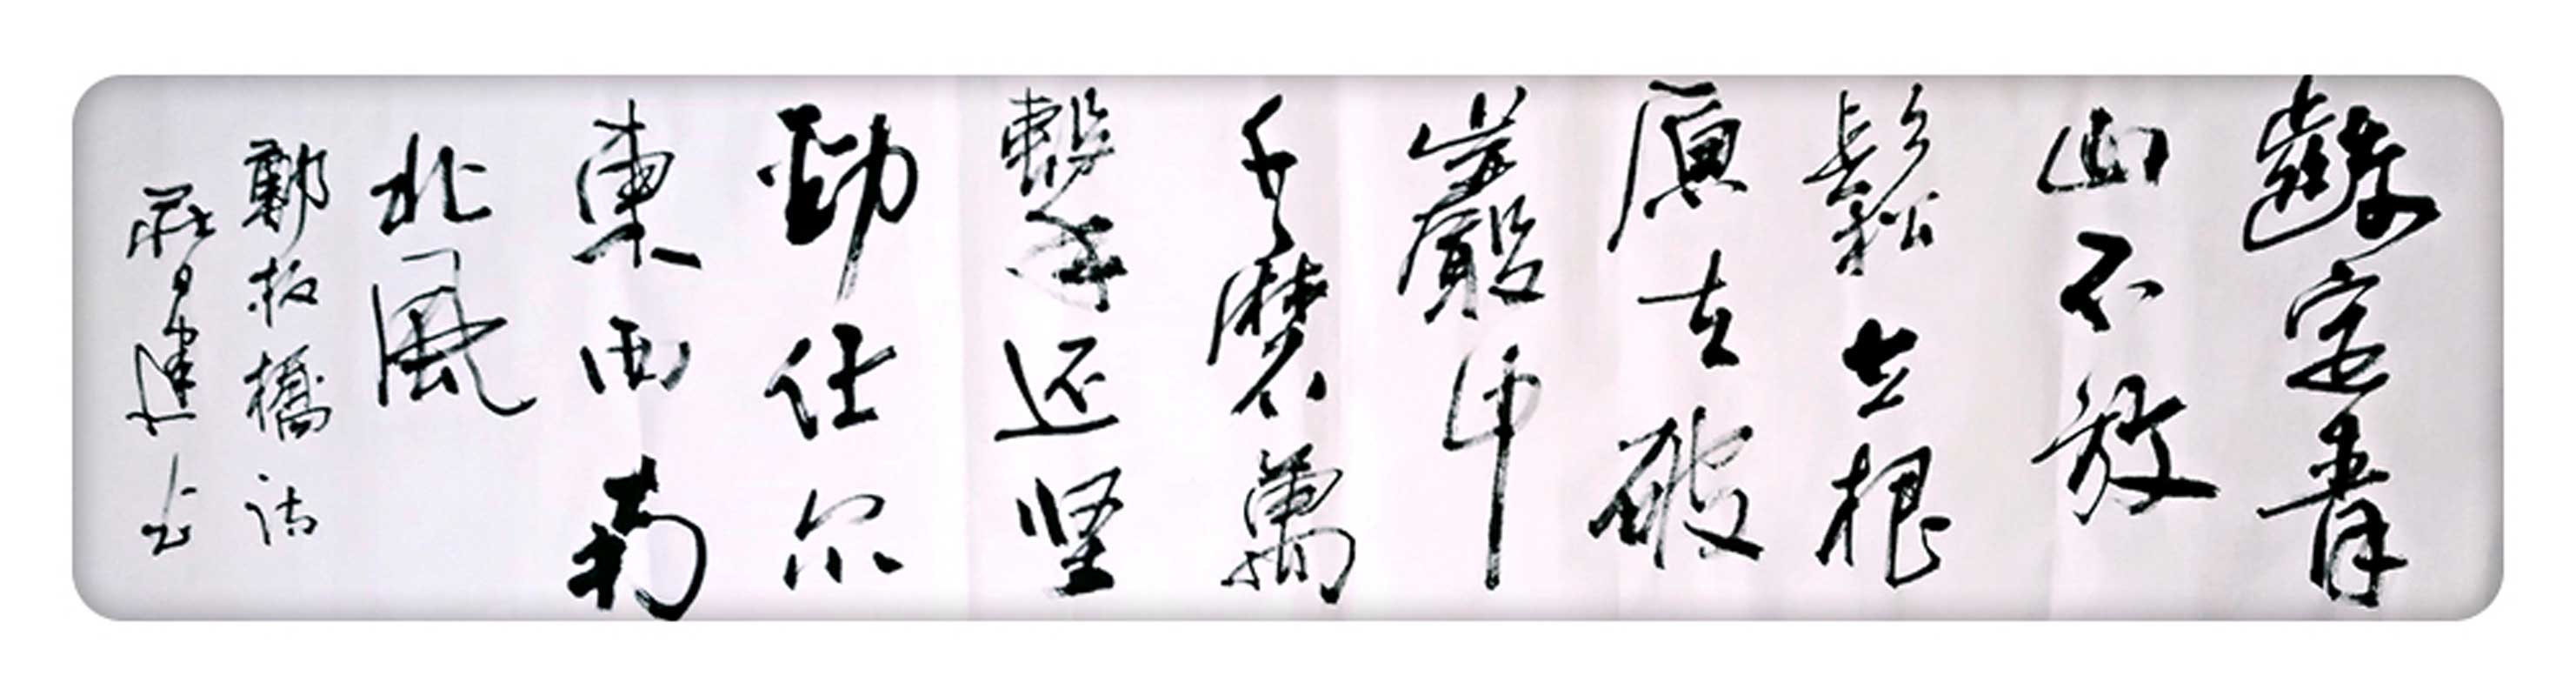 齩定青
山不放
鬆立根
原在破
巖中
千磨萬
擊还坚
勁任尔
東西南
北風
鄭板橋诗